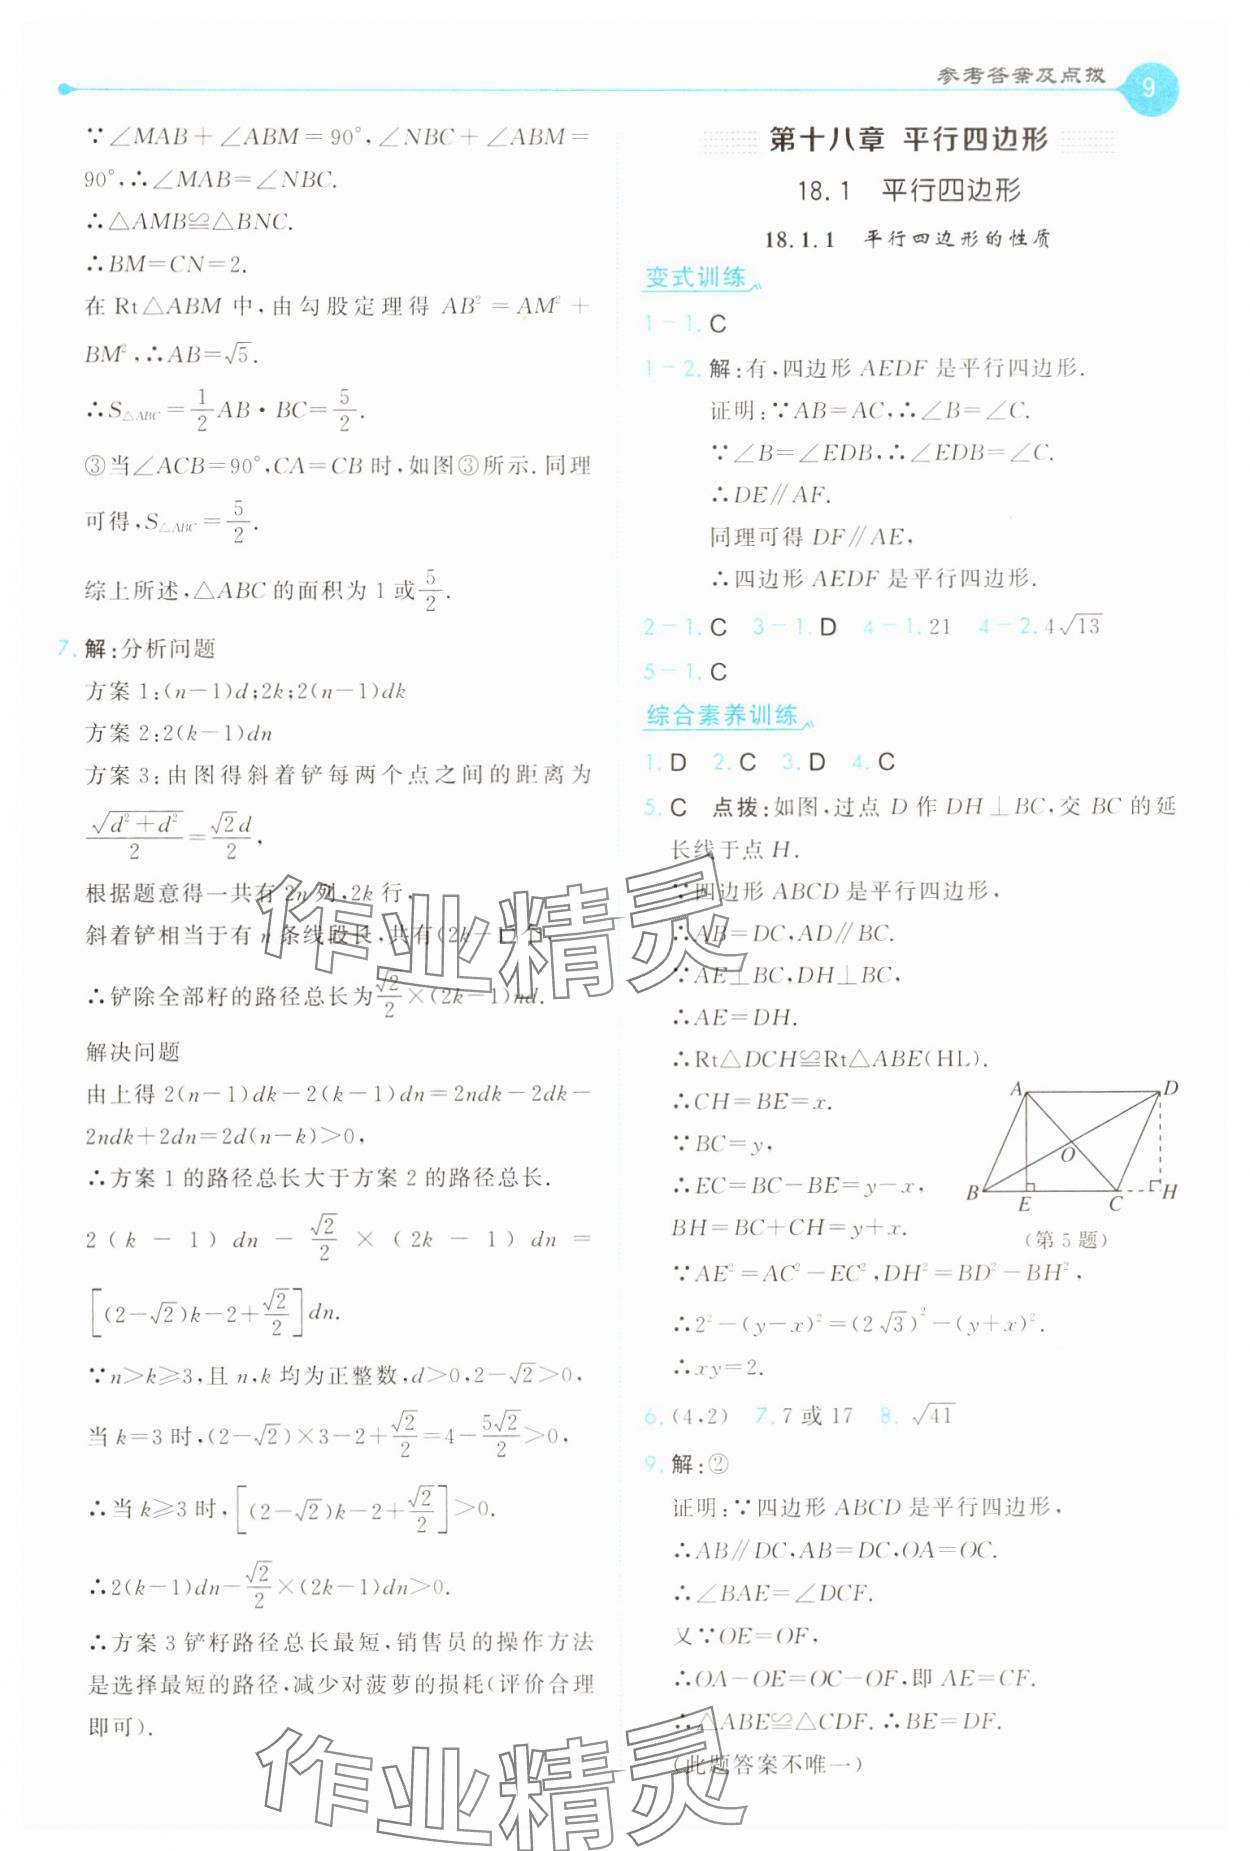 参考答案及点拨
9
∵∠MAB+∠ABM=90°,∠NBC+∠ABM=
90°,∴∠MAB=∠NBC.
∴△AMB≌△BNC.
∴BM=CN=2.
在 Rt△ABM 中,由勾股定理得 AB²=AM²+
BM²,∴AB=√5.
∴S△ABC=1/2 AB·BC=5/2.
③当∠ACB=90°,CA=CB时,如图③所示.同理
可得,S△ABC=5/2.
综上所述,△ABC的面积为1或5/2.
7. 解:分析问题
方案1:(n-1)d;2k;2(n-1)dk
方案2:2(k-1)dn
方案3:由图得斜着铲每两个点之间的距离为
√(d²+d²)/2=√2d/2,
根据题意得一共有2n列,2k行,
斜着铲相当于有n条线段长,共有(2k-1)个,
∴铲除全部籽的路径总长为√2/2×(2k-1)nd.
解决问题
由上得2(n-1)dk-2(k-1)dn=2ndk-2dk-
2ndk+2dn=2d(n-k)>0,
∴方案1的路径总长大于方案2的路径总长.
2(k-1)dn-√2/2×(2k-1)dn=
[(2-√2)k-2+√2/2]dn.
∵n>k≥3,且n,k均为正整数,d>0,2-√2>0,
当k=3时,(2-√2)×3-2+√2/2=4-5√2/2>0,
∴当k≥3时,[(2-√2)k-2+√2/2]>0.
∴2(k-1)dn-√2/2×(2k-1)dn>0.
∴方案3铲籽路径总长最短,销售员的操作方法
是选择最短的路径,减少对菠萝的损耗(评价合理
即可).
第十八章 平行四边形
18.1 平行四边形
18.1.1 平行四边形的性质
变式训练
1-1. C
1-2. 解:有,四边形AEDF是平行四边形.
证明:∵AB=AC,∴∠B=∠C.
∵∠B=∠EDB,∴∠EDB=∠C.
∴DE∥AF.
同理可得DF∥AE,
∴四边形AEDF是平行四边形.
2-1. C 3-1. D 4-1. 21 4-2. 4√13
5-1. C
综合素养训练
1. D 2. C 3. D 4. C
5. C 点拨:如图,过点D作DH⊥BC,交BC的延
长线于点H.
∵四边形ABCD是平行四边形,
∴AB=DC,AD∥BC.
∵AE⊥BC,DH⊥BC,
∴AE=DH.
∴Rt△DCH≌Rt△ABE(HL).
∴CH=BE=x.
∵BC=y,
∴EC=BC-BE=y-x,
BH=BC+CH=y+x.
A D O B E C H
(第5题)
∵AE²=AC²-EC²,DH²=BD²-BH²,
∴2²-(y-x)²=(2√3)²-(y+x)².
∴xy=2.
6. (4,2) 7. 7或17 8. √41
9. 解:②
证明:∵四边形ABCD是平行四边形,
∴AB∥DC,AB=DC,OA=OC.
∴∠BAE=∠DCF.
又∵OE=OF,
∴OA-OE=OC-OF,即AE=CF.
∴△ABE≌△CDF.∴BE=DF.
(此题答案不唯一)
作业精灵
作业精灵